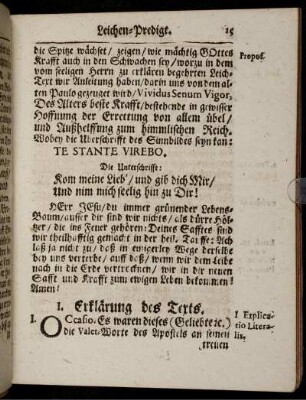 Leichen-Predigt. 15
die Spitze wächset/ zeigen/ wie mächtig GOttes
Krafft auch in den Schwachen sey/ worzu in dem
Propos.
vom seeligen Herrn zu erklären begehrten Leich-
Text wir Anleitung haben/ darin uns von dem al-
ten Paulo gezeuget wird/ Vividus Senum Vigor,
Des Alters beste Krafft/ bestehende in gewisser
Hoffnung der Errettung von allem übel/
und Außhelffung zum himmlischen Reich.
Wobey die Uberschrifft des Sinnbildes seyn kan:
TE STANTE VIREBO.
Die Unterschrifft:
Kom meine Lieb'/ und gib dich Mir/
Und nim mich seelig hin zu Dir!
HErr JEsu/ du immer grünender Lebens-
Baum/ ausser dir sind wir nichts/ als dürre Höl-
tzer/ die ins Feuer gehören: Deines Safftes sind
wir theilhafftig gemacht in der heil. Tauffe: Ach
laß ja nicht zu/ daß in einigerley Wege derselbe
bey uns vertrebe/ auff daß/ wenn wir dem leibe
nach in die Erde vertrecknen/ wir in dir neuen
Safft und Krafft zum ewigen Leben bekommen!
Amen!
I. Erklärung des Texts.
I. OCcasio. Es waren dieses (Geliebte ꝛc.)
I Explica-
tio Litera-
lis.
die Valet-Worte des Apostels an seinen
treuen